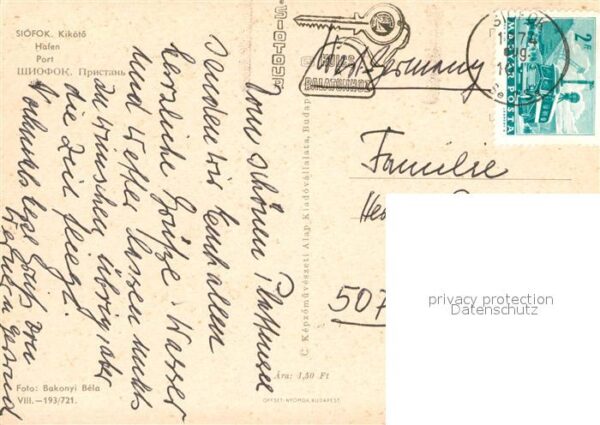 SIÓFOK. Kikötő
Hafen
Port
ШИОФОК. Пристань
Vom schönen Plattensee
senden wir Euch allen
herzliche Grüße. Wasser
und Wetter lassen nichts
zu wünschen übrig, aber
die Zeit fliegt.
Nochmals liebe Grüße von
Foto: Bakonyi Béla
VIII.—193/721.
C Képzőművészeti Alap Kiadóvállalata, Budapest
Ára: 1,50 Ft
OFFSET-NYOMDA, BUDAPEST
SIOTOUR
KULCS
BALATONHOZ
SIÓFOK
2 Ft
MAGYAR POSTA
West Germany
Familie
507
privacy protection
Datenschutz